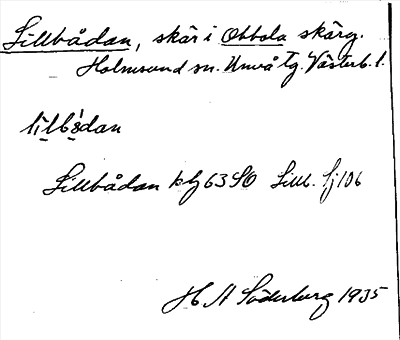 Lillbådan, skär i Obbola skärg.
Holmsund sn. Umeå tg. Västerb. l.
Lillbådan kbl 63 SO Lill. Sj 106
H A Söderberg 1935